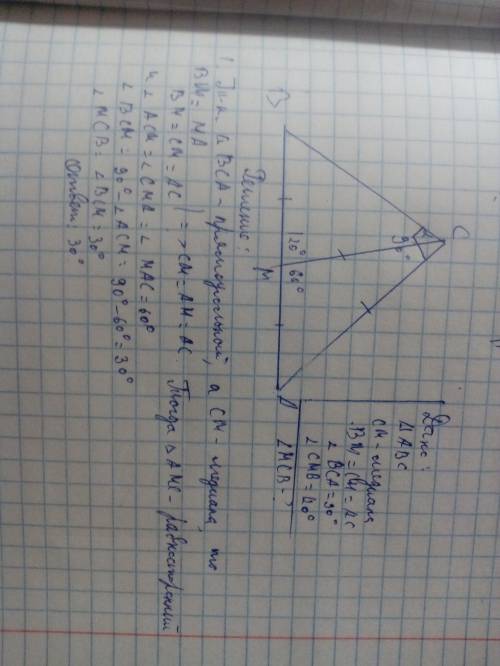 Дано:
△ABC
CM - медиана
BM = CM = AC
∠BCA = 90°
∠CMB = 120°
∠MCB - ?
C
90°
B
120°
60°
M
A
Решение:
1. Т.к. △BCA - прямоугольный, а CM - медиана, то
BM = MA
BM = CM = AC | => CM = AM = AC. Тогда △AMC - равносторонний
и ∠ACM = ∠CMA = ∠MAC = 60°
∠BCM = 90° - ∠ACM = 90° - 60° = 30°
∠MCB = ∠BCM = 30°
Ответ: 30°